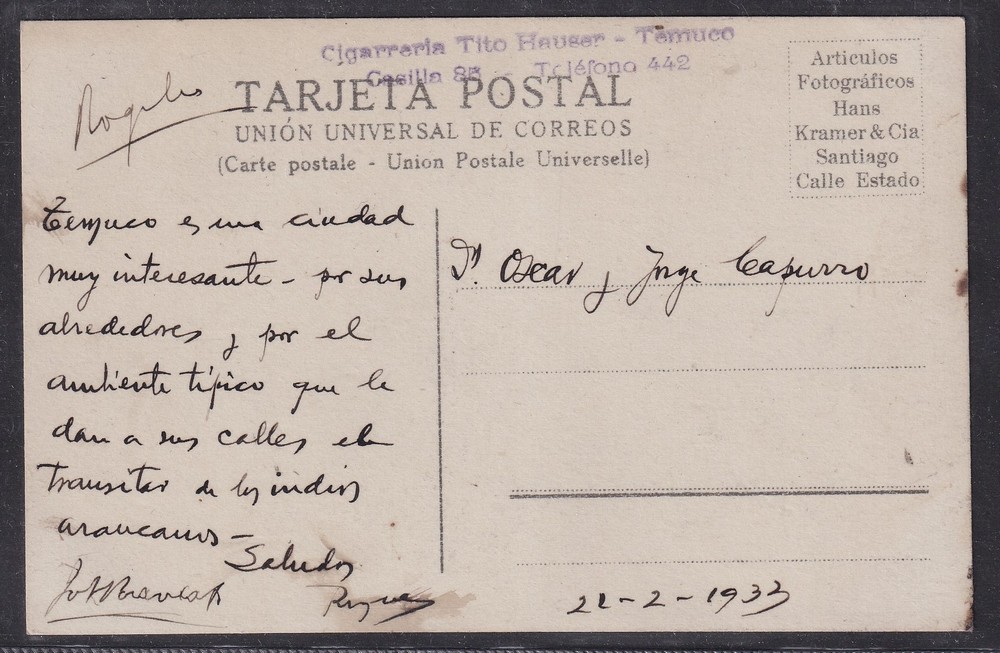 Cigarreria Tito Hauser - Temuco
Casilla 85 - Teléfono 442
TARJETA POSTAL
UNIÓN UNIVERSAL DE CORREOS
(Carte postale - Union Postale Universelle)
Articulos
Fotográficos
Hans
Kramer & Cia
Santiago
Calle Estado
Rogelio
Temuco es una ciudad
muy interesante - por sus
alrededores y por el
ambiente típico que le
dan a sus calles el
transitar de los indios
araucanos -
Saludos
Sr. Oscar y Jorge Capurro
21-2-1933